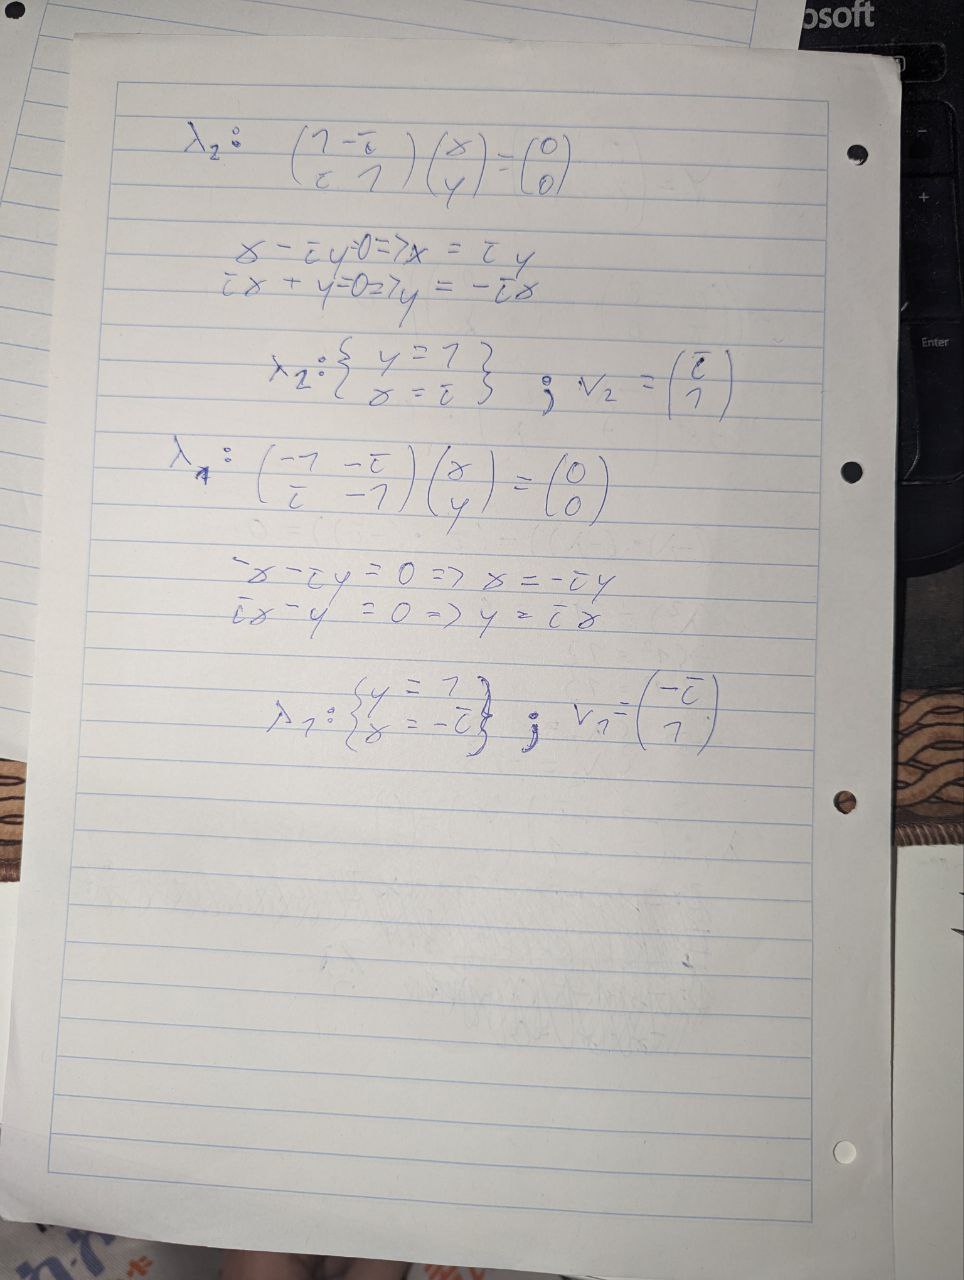 osoft
λ₂: (1 -i; i 1)(x; y) = (0; 0)
x - iy=0=>x = iy
ix + y=0=>y = -ix
λ₂: { y = 1; x = i } ; v₂ = (i; 1)
Enter
λ₁: (-1 -i; i -1)(x; y) = (0; 0)
-x - iy = 0 => x = -iy
ix - y = 0 => y = ix
λ₁: { y = 1; x = -i } ; v₁ = (-i; 1)